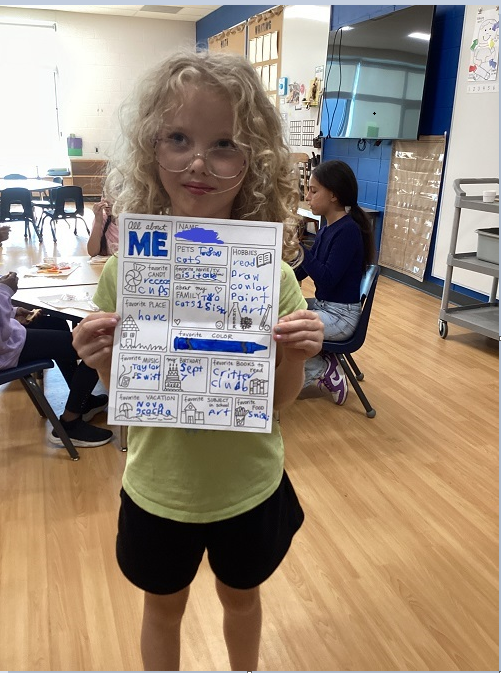 All about
ME
NAME
PETS Two
cats
HOBBIES
read
Draw
color
Paint
Art
favorite
CANDY
reeces
cups
favorite
about my
FAMILY two
cats 1 Sis
favorite PLACE
home
favorite COLOR
favorite MUSIC
Taylor
Swift
my BIRTHDAY
Sept
7
favorite BOOKS to
read
Critter
club
favorite VACATION
Nova
Scotia
favorite SUBJECT
in school
Art
favorite
FOOD
WRITING